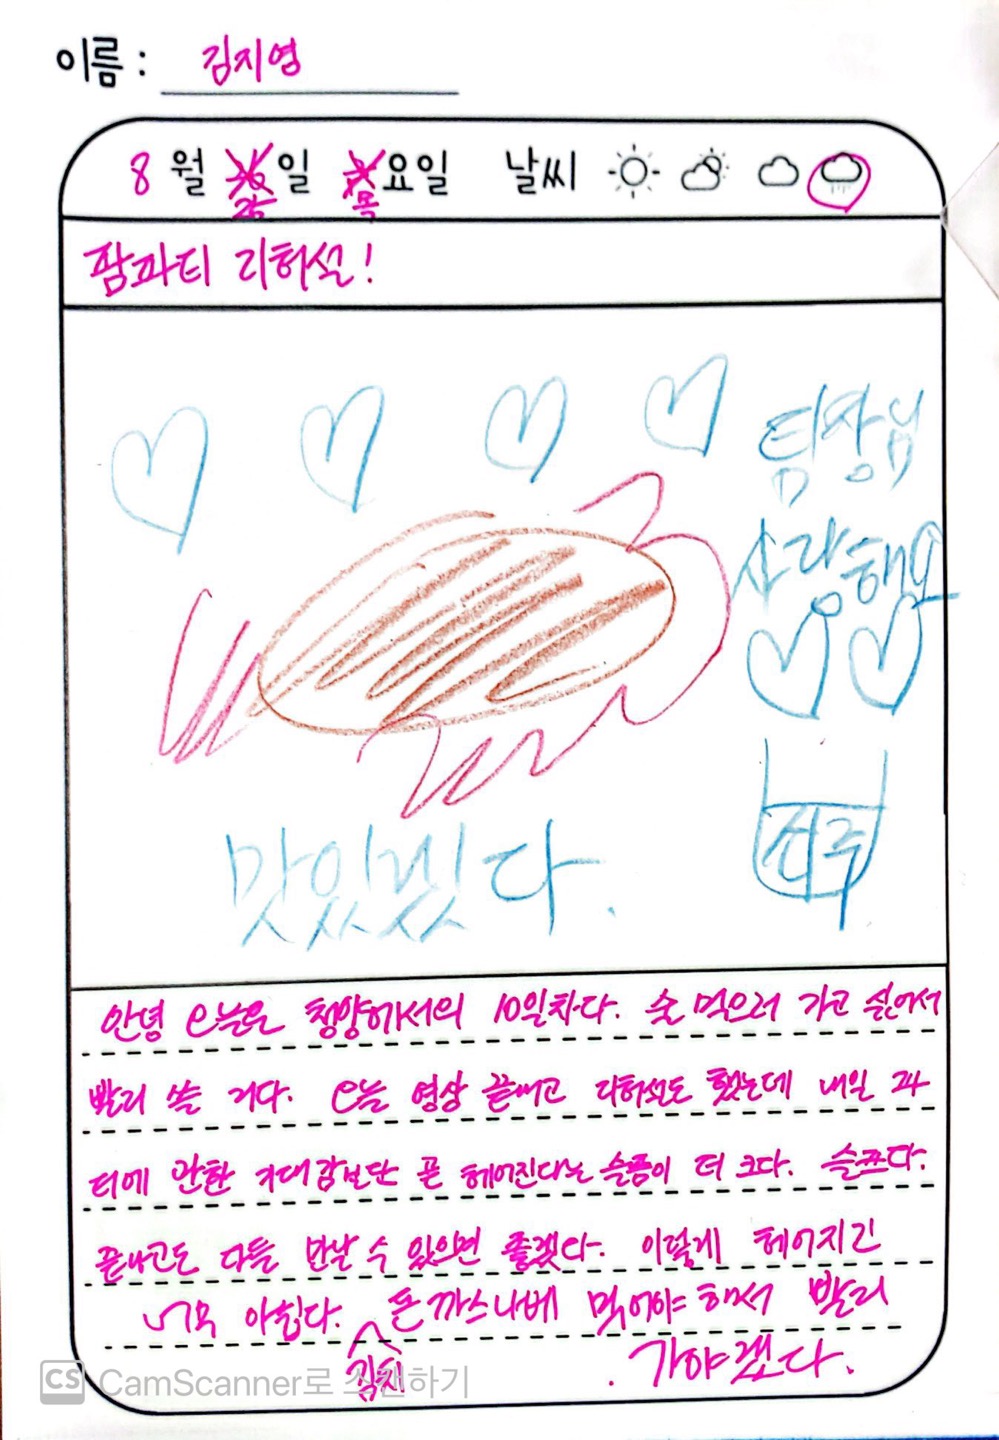 이름 : 김지영
8 월 25 일 목 요일 날씨
팜파티 리허설!
팀장님
사랑해요
맛있겠다.
안녕 오늘은 청양에서의 10일차다. 술 먹으러 가고 싶어서
빨리 쓸 거다. 오늘 영상 끝내고 리허설도 했는데 내일 파
티에 관한 기대감보단 곧 헤어진다는 슬픔이 더 크다. 슬프다.
끝나고도 다들 만날 수 있으면 좋겠다. 이렇게 헤어지긴
너무 아쉽다. 김치 돈까스나베 먹어야 해서 빨리
가야겠다.
CS CamScanner로 스캔하기